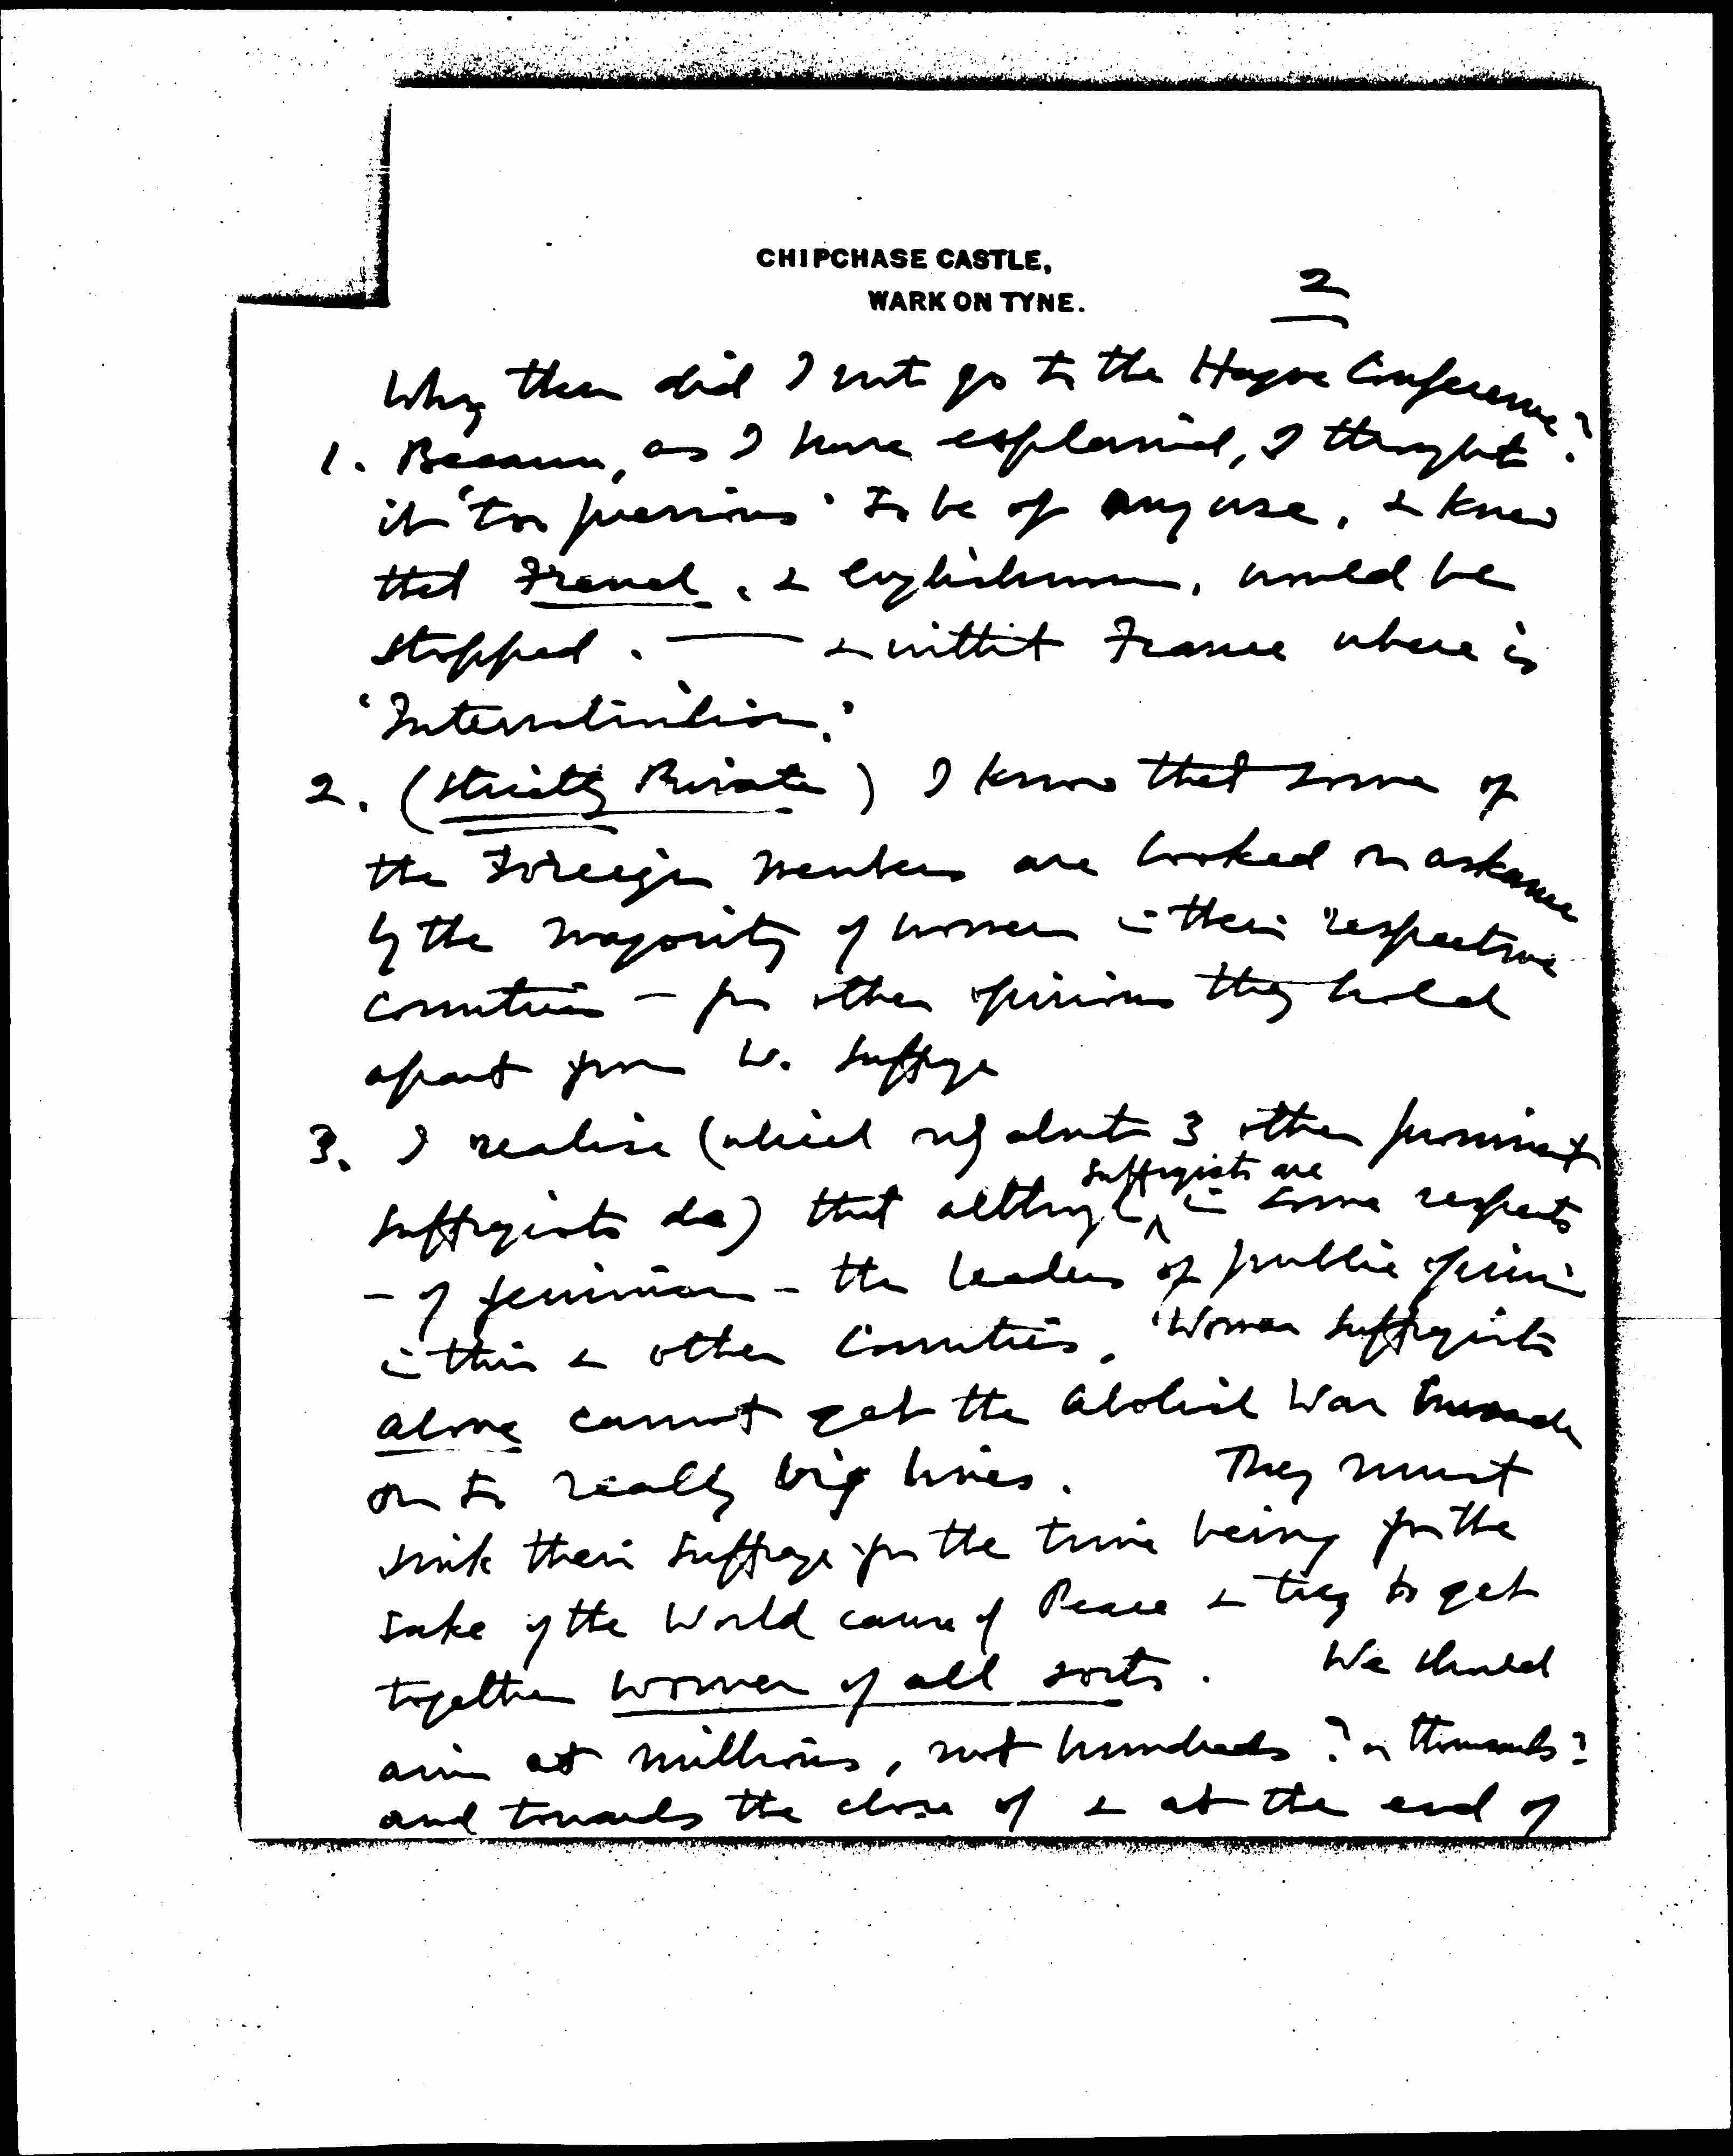 CHIPCHASE CASTLE,
WARK ON TYNE.
2
Why then did I not go to the Hague Conference?
1. Because, as I have explained, I thought
it 'too previous' to be of any use, & knew
that French, & Englishwomen, would be
stopped. — & without France where is
'Internationalism.'
2. (Strictly Private) I know that some of
the Foreign members are looked on askance
by the majority of women in their respective
countries – for other opinions they hold
apart from W. Suffrage
3. I realise (which only about 3 other prominent
suffragists do) that although suffragists are in some respects
– of feminism – the leaders of public opinion
in this & other Countries, Woman Suffragists
alone cannot get the Abolish War Crusade
on to really big lines. They must
sink their Suffrage for the time being for the
sake of the World cause of Peace & try to get
together women of all sorts. We should
aim at millions, not hundreds? or thousands?
and towards the close of & at the end of